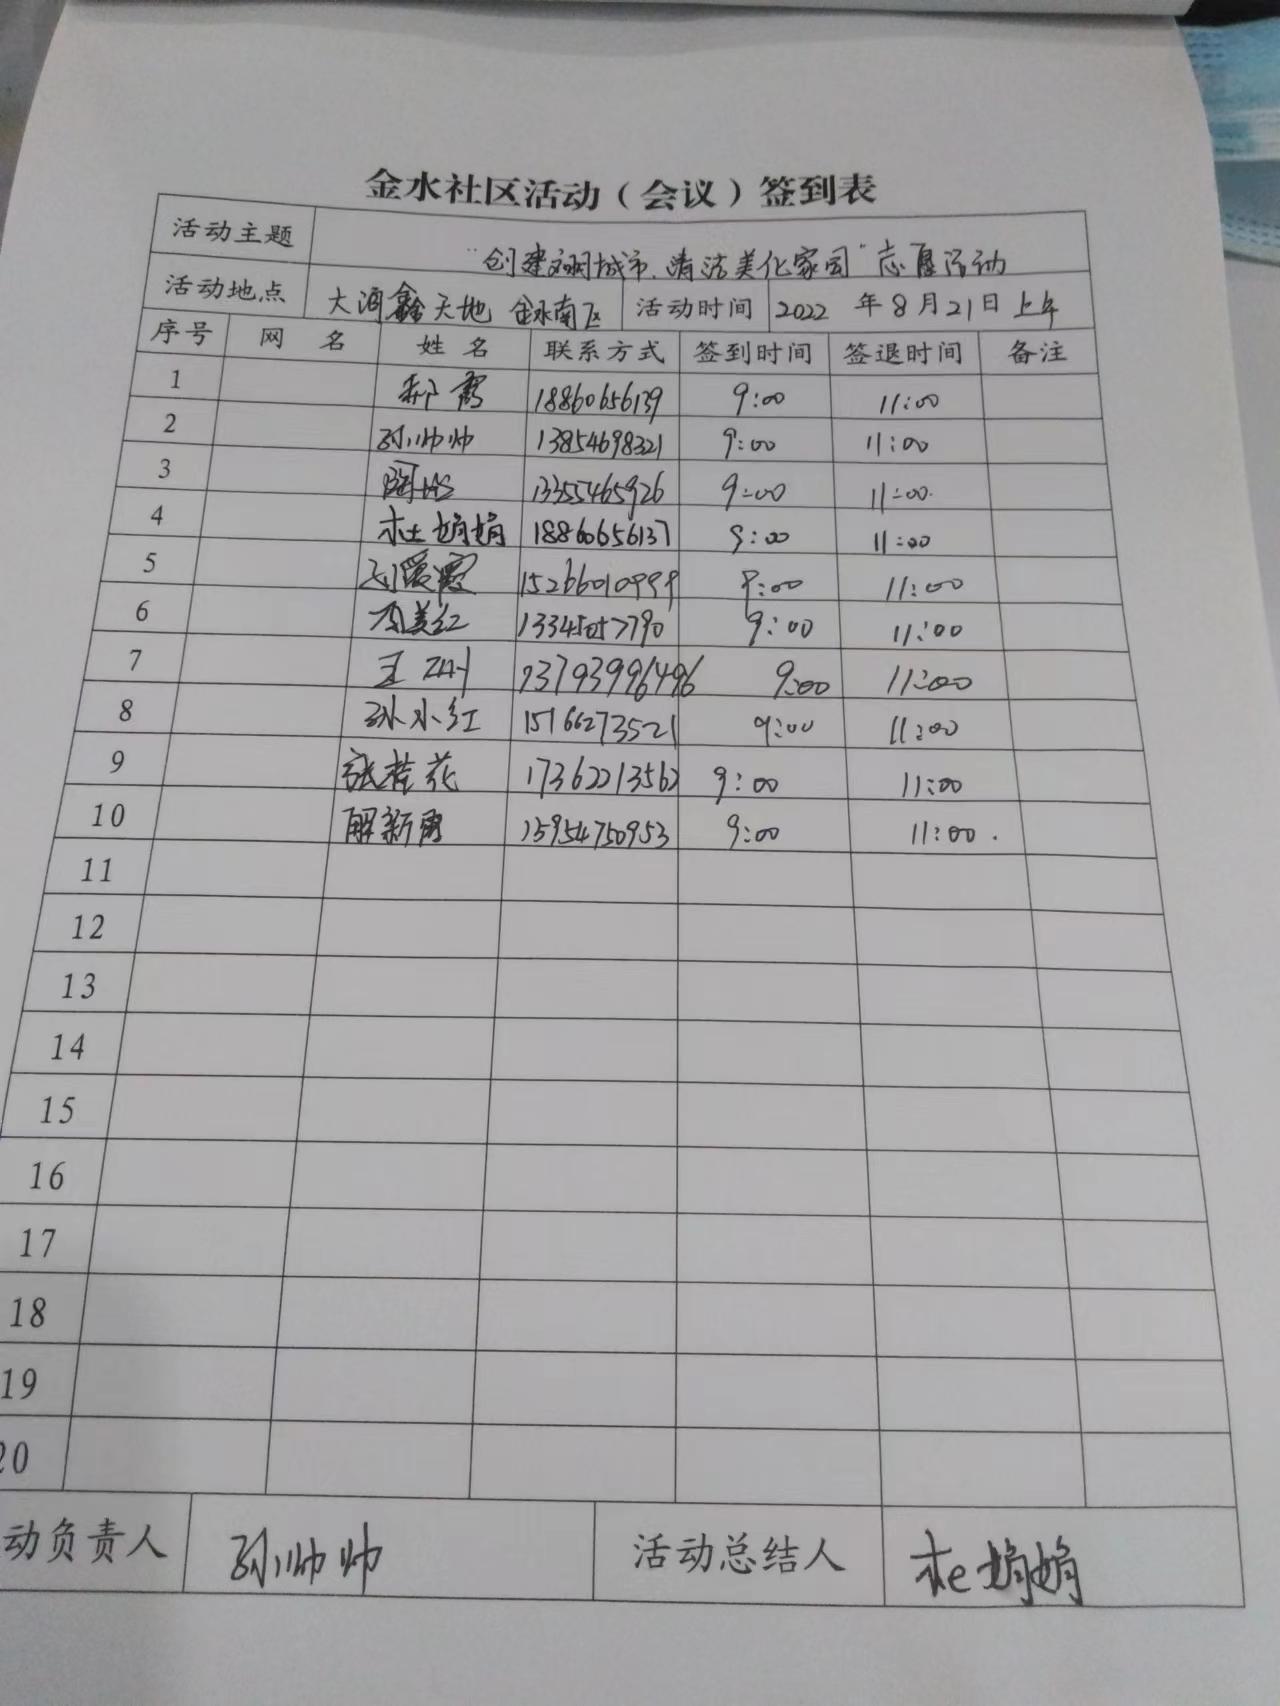 金水社区活动（会议）签到表
活动主题 "创建文明城市、清洁美化家园"志愿活动
活动地点 大河鑫天地 金水南区 活动时间 2022 年8月21日上午
序号 网 名 姓 名 联系方式 签到时间 签退时间 备注
1 郝霄 18860656139 9:00 11:00
2 孙帅帅 13854698321 9:00 11:00
3 13355465926 9:00 11:00
4 杜娟娟 18860656137 9:00 11:00
5 刘爱霞 15266010999 9:00 11:00
6 美红 13345057790 9:00 11:00
7 王 13793996496 9:00 11:00
8 孙小红 15166273521 9:00 11:00
9 张桂花 17362213562 9:00 11:00
10 解新 15954750953 9:00 11:00.
11
12
13
14
15
16
17
18
19
20
动负责人 孙帅帅 活动总结人 杜娟娟